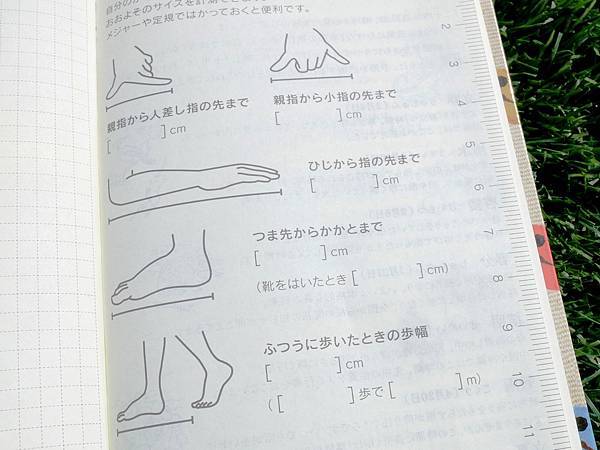 おおよそのサイズを計測でき
メジャーや定規ではかっておくと便利です。
親指から人差し指の先まで
[ ] cm
親指から小指の先まで
[ ] cm
ひじから指の先まで
[ ] cm
つま先からかかとまで
[ ] cm
(靴をはいたとき [ ] cm)
ふつうに歩いたときの歩幅
[ ] cm
( [ ] 歩で [ ] m)
2
3
4
5
6
7
8
9
10
11